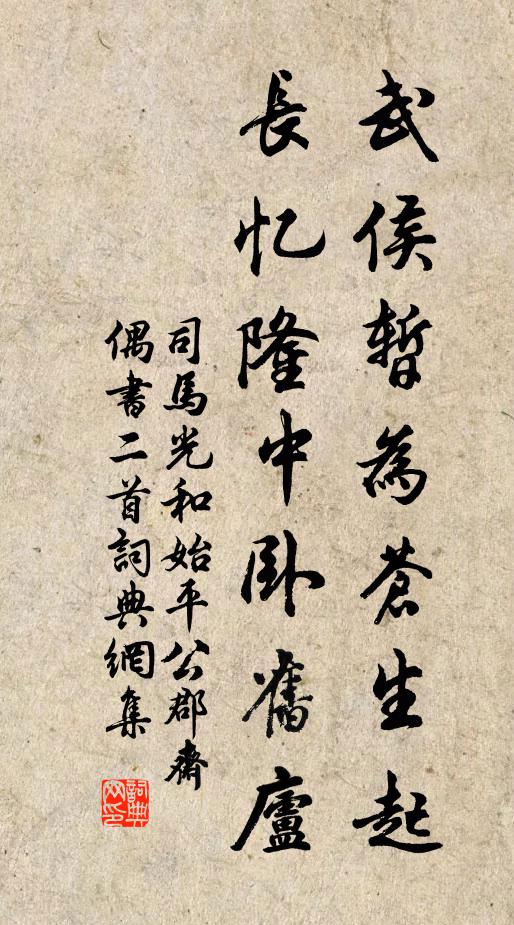 武侯暫為蒼生起
長忆隆中卧舊廬
司馬光和始平公郡齋
偶書二首詞典網集
詞典网印